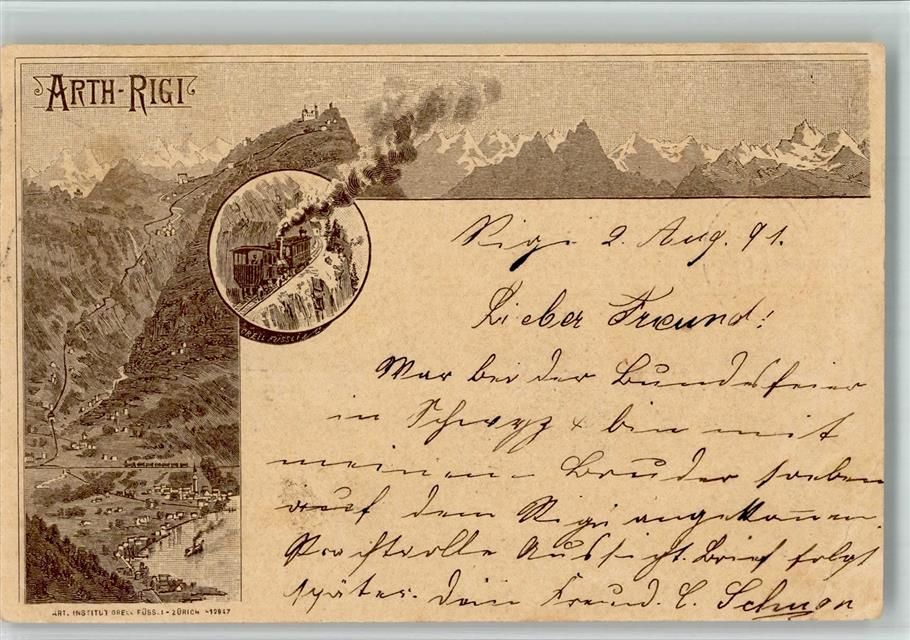 ARTH-RIGI
Rigi 2. Aug. 91.
Lieber Freund!
War bei der Bundesfeier
in Schwyz & bin mit
meinem Bruder soeben
auf dem Rigi angekommen.
Prachtvolle Aussicht. Brief folgt
später. Dein Freund. C.
ORELL FÜSSLI
ART. INSTITUT ORELL FÜSSLI - ZÜRICH